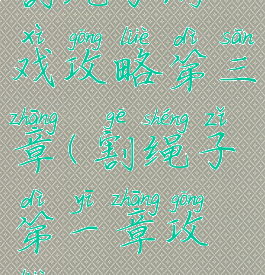 xì gōng lüè dì sān
戏攻略第三
zhāng gē shéng zǐ
章(割绳子
dì yī zhāng gōng
第一章攻